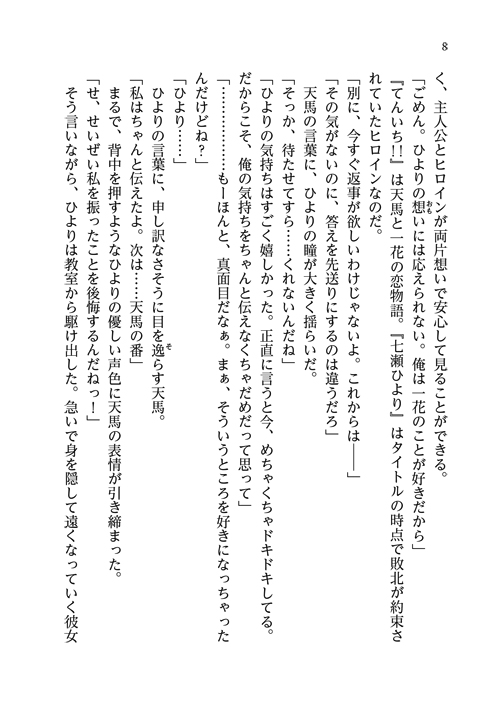 8
く、主人公とヒロインが両片想いで安心して見ることができる。
「ごめん。ひよりの想いには応えられない。俺は一花のことが好きだから」
『てんいち!!』は天馬と一花の恋物語。『七瀬ひより』はタイトルの時点で敗北が約束さ
れていたヒロインなのだ。
「別に、今すぐ返事が欲しいわけじゃないよ。これからは――」
「その気がないのに、答えを先送りにするのは違うだろ」
天馬の言葉に、ひよりの瞳が大きく揺らいだ。
「そっか、待たせてすら……くれないんだね」
「ひよりの気持ちはすごく嬉しかった。正直に言うと今、めちゃくちゃドキドキしてる。
だからこそ、俺の気持ちをちゃんと伝えなくちゃだめだって思って」
「………………もーほんと、真面目だなぁ。まぁ、そういうところを好きになっちゃった
んだけどね?」
「ひより……」
ひよりの言葉に、申し訳なさそうに目を逸らす天馬。
「私はちゃんと伝えたよ。次は……天馬の番」
まるで、背中を押すようなひよりの優しい声色に天馬の表情が引き締まった。
「せ、せいぜい私を振ったことを後悔するんだねっ!」
そう言いながら、ひよりは教室から駆け出した。急いで身を隠して遠くなっていく彼女